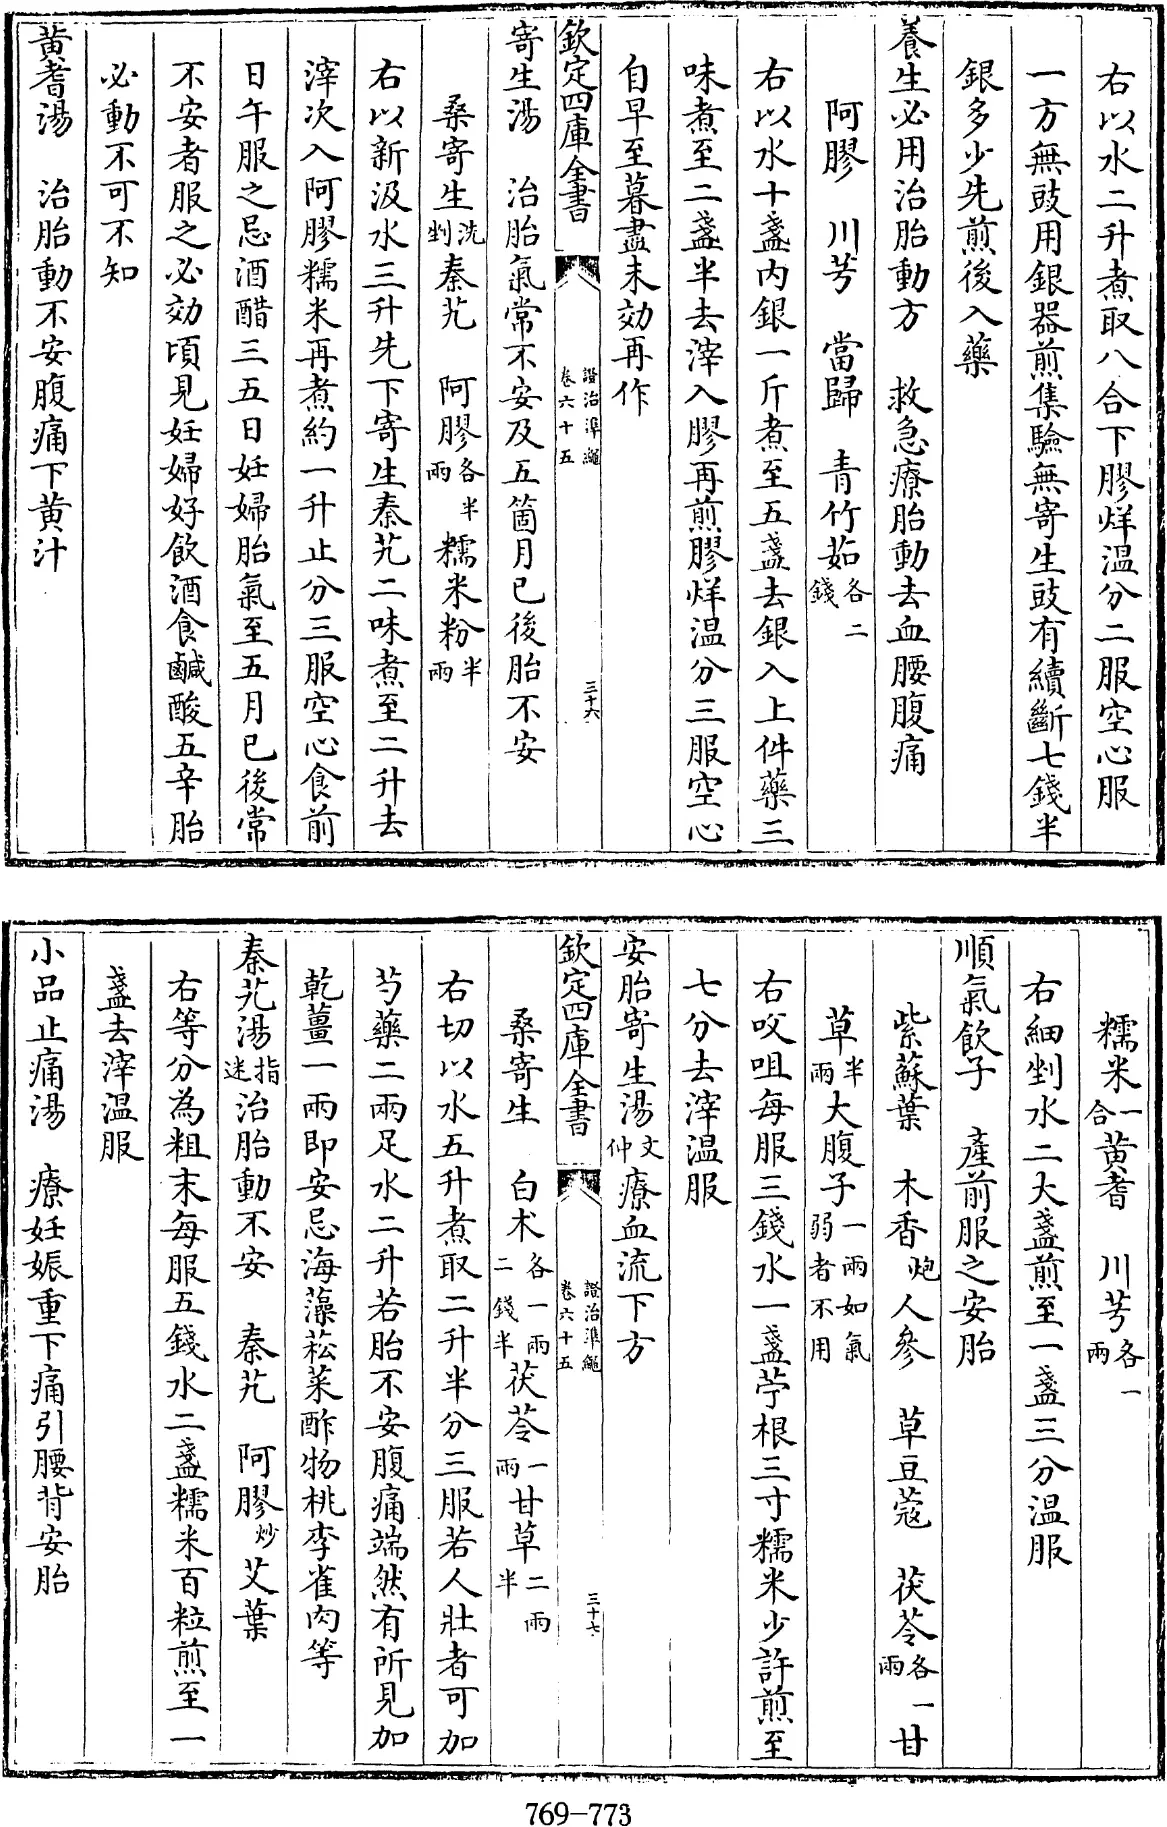 右以水二升煮取八合下膠烊温分二服空心服
一方無豉用銀器煎集驗無寄生豉有續斷七錢半
銀多少先煎後入藥
養生必用治胎動方　救急療胎動去血腰腹痛
阿膠　川芎　當歸　青竹茹各二錢
右以水十盞内銀一斤煮至五盞去銀入上件藥三
味煮至二盞半去滓入膠再煎膠烊温分三服空心
自早至暮盡未効再作
欽定四庫全書　證治準繩　卷六十五　三十六
寄生湯　治胎氣常不安及五箇月已後胎不安
桑寄生洗剉秦艽　阿膠各半兩糯米粉半兩
右以新汲水三升先下寄生秦艽二味煮至二升去
滓次入阿膠糯米再煮約一升止分三服空心食前
日午服之忌酒醋三五日妊婦胎氣至五月已後常
不安者服之必効頃見妊婦好飲酒食鹹酸五辛胎
必動不可不知
黄耆湯　治胎動不安腹痛下黄汁
糯米一合黄耆　川芎各一兩
右細剉水二大盞煎至一盞三分温服
順氣飲子　產前服之安胎
紫蘇葉　木香炮人參　草豆蔻　茯苓各一兩甘
草半兩大腹子一兩如氣弱者不用
右㕮咀每服三錢水一盞苧根三寸糯米少許煎至
七分去滓温服
安胎寄生湯文仲療血流下方
欽定四庫全書　證治準繩　卷六十五　三十七
桑寄生　白术各一兩二錢半茯苓一兩甘草二兩半
右切以水五升煮取二升半分三服若人壯者可加
芍藥二兩足水二升若胎不安腹痛端然有所見加
乾薑一兩即安忌海藻菘菜酢物桃李雀肉等
秦艽湯指迷治胎動不安　秦艽　阿膠炒艾葉
右等分為粗末每服五錢水二盞糯米百粒煎至一
盞去滓温服
小品止痛湯　療妊娠重下痛引腰背安胎
769-773